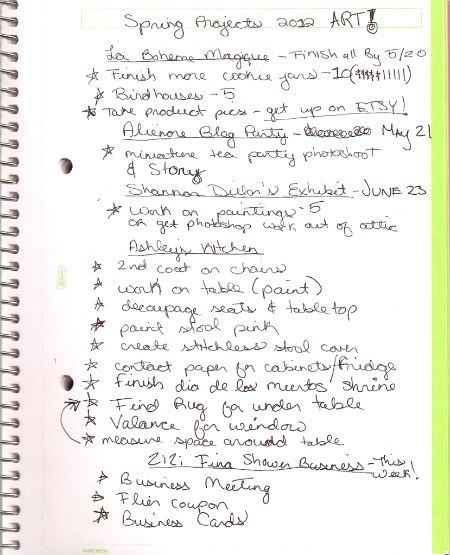 Spring Projects 2012 ART!
La Boheme Magique - Finish all By 5/20
☆ Finish more cookie jars - 10
☆ Birdhouses - 5
☆ Take product pics - get up on ETSY!
Alienore Blog Party - May 21
☆ miniature tea party photoshoot
& Story
Shannon Dillon's Exhibit - JUNE 23
☆ work on paintings - 5
or get photoshop work out of attic
Ashley's Kitchen
☆ 2nd coat on chairs
☆ work on table (paint)
☆ decoupage seats & table top
☆ paint stool pink
☆ create stitchless stool cover
☆ contact paper for cabinets/fridge
☆ Finish dia de los muertos shrine
☆ Find Rug for under table
☆ Valance for window
☆ measure space around table
Fina Shower Business - This
week!
☆ Business Meeting
☆ Flier coupon
☆ Business Cards